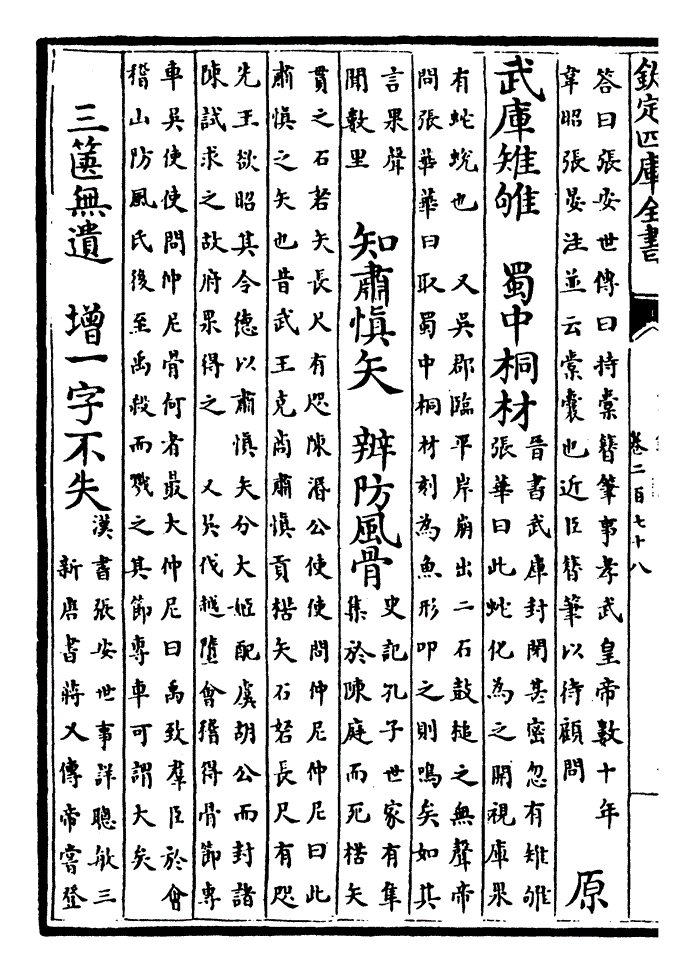 欽定四庫全書
卷二百七十八
答曰張安世傳曰持橐簪筆事孝武皇帝數十年
韋昭張晏注並云橐囊也近臣簪筆以待顧問
原
武庫雉雊 蜀中桐材
晉書武庫封閉甚密忽有雉雊
張華曰此蛇化為之開視庫果
有蛇蛻也 又吳郡臨平岸崩出二石鼓槌之無聲帝
問張華華曰取蜀中桐材刻為魚形叩之則鳴矣如其
言果聲
聞數里
知肅慎矢 辨防風骨
史記孔子世家有隼
集於陳庭而死楛矢
貫之石砮矢長尺有咫陳湣公使使問仲尼仲尼曰此
肅慎之矢也昔武王克商肅慎貢楛矢石砮長尺有咫
先王欲昭其令德以肅慎矢分大姬配虞胡公而封諸
陳試求之故府果得之 又吳伐越墮會稽得骨節專
車吳使使問仲尼骨何者最大仲尼曰禹致羣臣於會
稽山防風氏後至禹殺而戮之其節專車可謂大矣
三篋無遺 增一字不失
漢書張安世事詳聰敏三
新唐書蔣乂傳帝嘗登